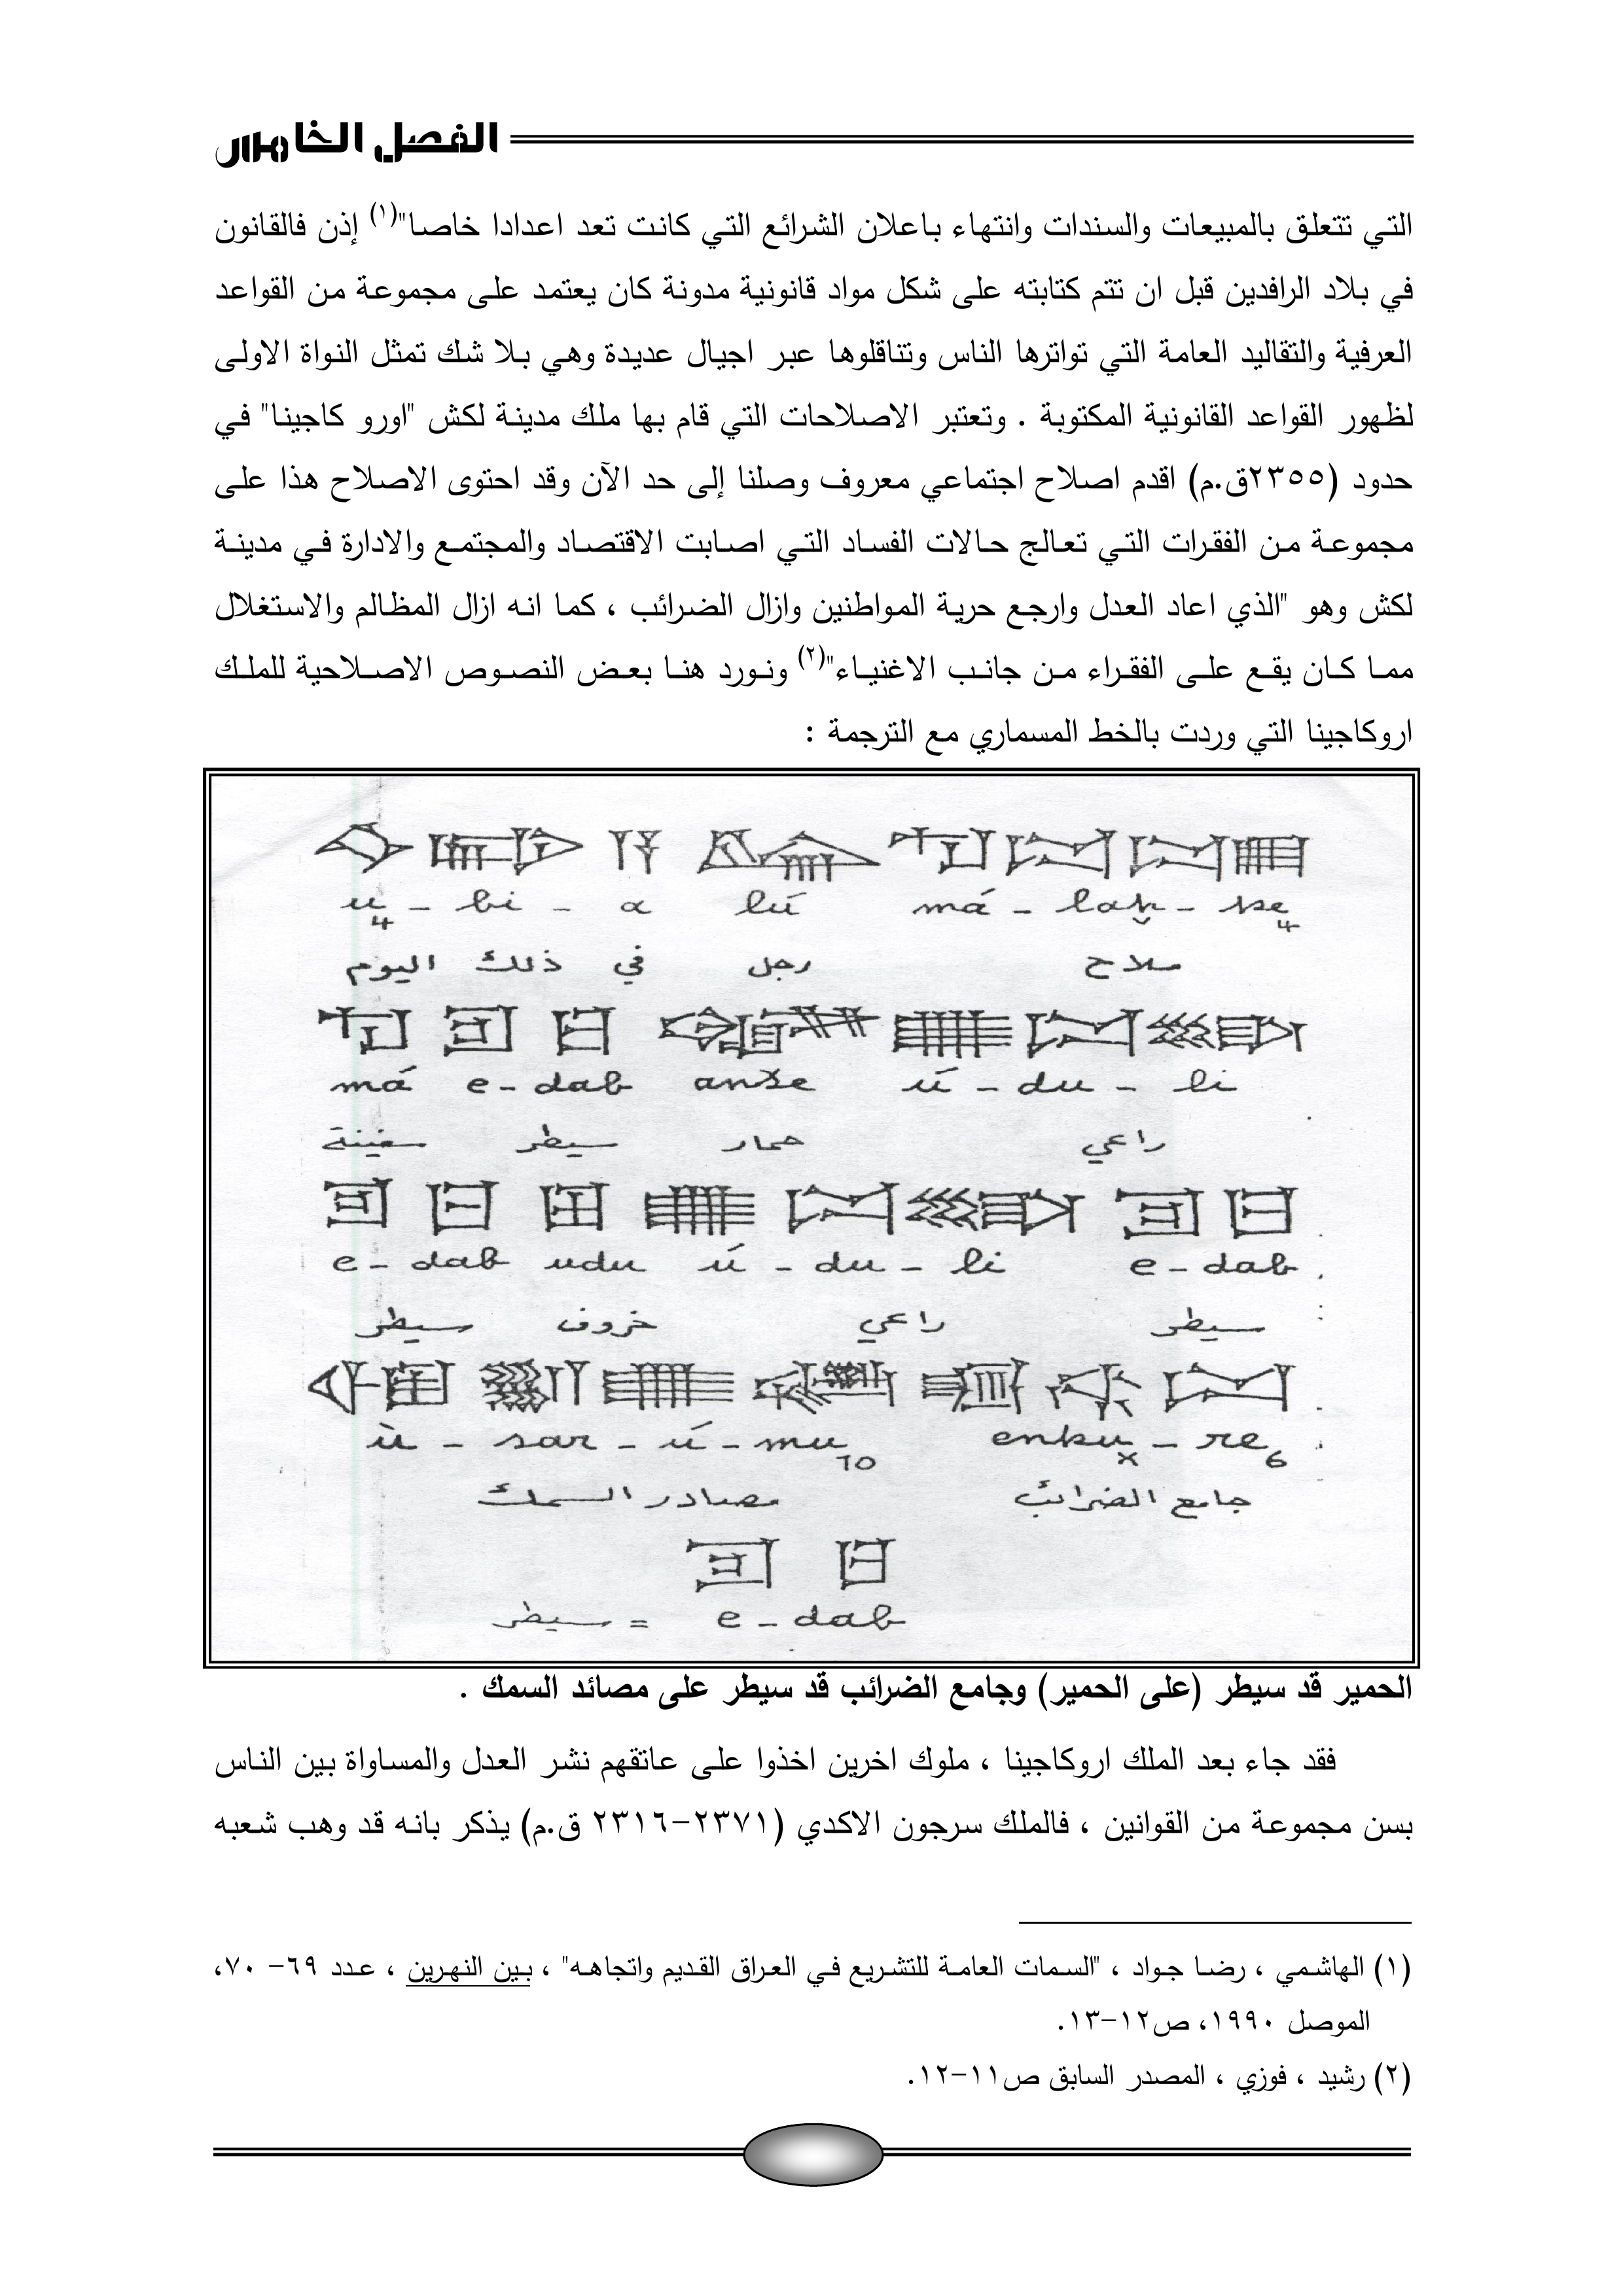 الفصل الخامس
التي تتعلق بالمبيعات والسندات وانتهاء باعلان الشرائع التي كانت تعد اعدادا خاصا"(١) إذن فالقانون
في بلاد الرافدين قبل ان تتم كتابته على شكل مواد قانونية مدونة كان يعتمد على مجموعة من القواعد
العرفية والتقاليد العامة التي تواترها الناس وتناقلوها عبر اجيال عديدة وهي بلا شك تمثل النواة الاولى
لظهور القواعد القانونية المكتوبة . وتعتبر الاصلاحات التي قام بها ملك مدينة لكش "اورو كاجينا" في
حدود (٢٣٥٥ق.م) اقدم اصلاح اجتماعي معروف وصلنا إلى حد الآن وقد احتوى الاصلاح هذا على
مجموعة من الفقرات التي تعالج حالات الفساد التي اصابت الاقتصاد والمجتمع والادارة في مدينة
لكش وهو "الذي اعاد العدل وارجع حرية المواطنين وازال الضرائب ، كما انه ازال المظالم والاستغلال
مما كان يقع على الفقراء من جانب الاغنياء"(٢) ونورد هنا بعض النصوص الاصلاحية للملك
اروكاجينا التي وردت بالخط المسماري مع الترجمة :
u₄ - bi - a lú má - laḫ - ke₄
في ذلك اليوم رجل ملاح
má e - dab anše ú - du - li
سفينة سيطر حمار راعي
e - dab udu ú - du - li e - dab
سيطر خروف راعي سيطر
ù - sar - ú - mu₁₀ enkuₓ - re₆
مصادر السمك جامع الضرائب
e - dab = سيطر
الحمير قد سيطر (على الحمير) وجامع الضرائب قد سيطر على مصائد السمك .
فقد جاء بعد الملك اروكاجينا ، ملوك اخرين اخذوا على عاتقهم نشر العدل والمساواة بين الناس
بسن مجموعة من القوانين ، فالملك سرجون الاكدي (٢٣٧١-٢٣١٦ ق.م) يذكر بانه قد وهب شعبه
(١) الهاشمي ، رضا جواد ، "السمات العامة للتشريع في العراق القديم واتجاهه" ، بين النهرين ، عدد ٦٩- ٧٠،
الموصل ١٩٩٠، ص١٢-١٣.
(٢) رشيد ، فوزي ، المصدر السابق ص١١-١٢.